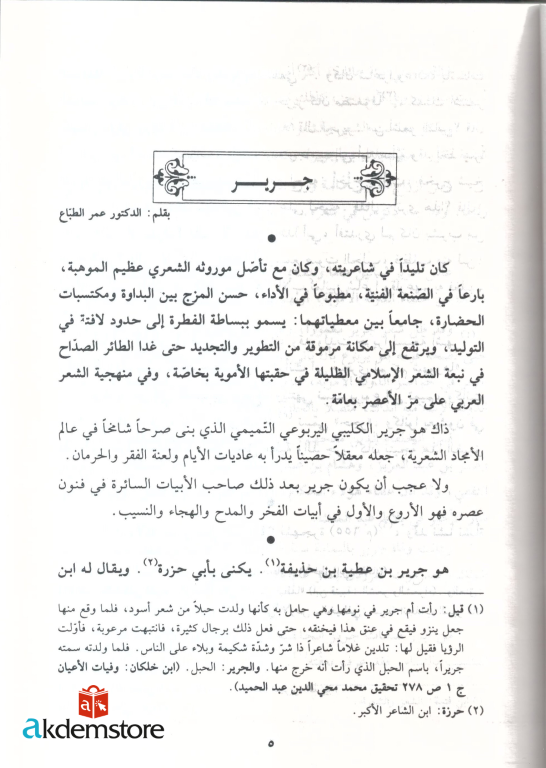 جـــريـــر
بقلم: الدكتور عمر الطبّاع
كان تليداً في شاعريته، وكان مع تأصّل موروثه الشعري عظيم الموهبة،
بارعاً في الصّنعة الفنيّة، مطبوعاً في الأداء، حسن المزج بين البداوة ومكتسبات
الحضارة، جامعاً بين معطياتهما: يسمو ببساطة الفطرة إلى حدود لافتة في
التوليد، ويرتفع إلى مكانة مرموقة من التطوير والتجديد حتى غدا الطائر الصدّاح
في نبعة الشعر الإسلامي الظليلة في حقبتها الأموية بخاصّة، وفي منهجية الشعر
العربي على مرّ الأعصر بعامّة.
ذاك هو جرير الكليبي اليربوعي التّميمي الذي بنى صرحاً شامخاً في عالم
الأمجاد الشعرية، جعله معقلاً حصيناً يدرأ به عاديات الأيام ولعنة الفقر والحرمان.
ولا عجب أن يكون جرير بعد ذلك صاحب الأبيات السائرة في فنون
عصره فهو الأروع والأول في أبيات الفخر والمدح والهجاء والنسيب.
هو جرير بن عطية بن حذيفة(١). يكنى بأبي حزرة(٢). ويقال له ابن
(١) قيل: رأت أم جرير في نومها وهي حامل به كأنها ولدت حبلاً من شعر أسود، فلما وقع منها
جعل ينزو فيقع في عنق هذا فيخنقه، حتى فعل ذلك برجال كثيرة، فانتبهت مرعوبة، فأوّلت
الرؤيا فقيل لها: تلدين غلاماً شاعراً ذا شرّ وشدّة شكيمة وبلاء على الناس. فلما ولدته سمته
جريراً، باسم الحبل الذي رأت أنه خرج منها. والجرير: الحبل. (ابن خلكان: وفيات الأعيان
ج ١ ص ٢٧٨ تحقيق محمد محي الدين عبد الحميد).
(٢) حرزة: ابن الشاعر الأكبر.
akdemstore
٥